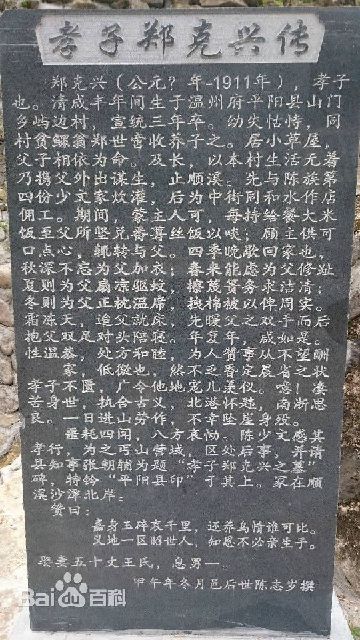 孝子郑克兴传
郑克兴(公元?年-1911年),孝子
也。清咸丰年间生于温州府平阳县山门
乡屿边村,宣统三年卒。幼失怙恃,同
村贫鳏翁郑世营收养子之。居小草屋,
父子相依为命。及长,以本村生活无着
乃携父外出谋生,止顺溪。先与陈族第
四份少文家炊灌,后为中街则和水作店
佣工。期间,蒙主人可,每持给餐大米
饭至父所坚兑番薯丝饭以啖;顾主供可
口点心,辄转与父。四季晚歇回家也,
秋深不忘为父加衣;春来能虑为父修趾
夏则为父扇凉驱蚊,擦蔑簧务求洁清;
冬则为父正枕温席,拽棉被以俾周实。
霜冻天,造父就床,先暖父之双手而后
抱父双足对头陪寝。年复年,咸如是。
性温恭,处方和睦,为人赞事从不望酬
家,低微也,然不乏香定晨省之状
孝子不匮,广令他地宠儿美仪。噫!凄
苦身世,执合古义,北港怀魅,南浙思
良。一日进山劳作,不幸坠崖身殁。
噩耗四闻,八方哀恸。陈少文感其
孝行,为之丐山营域,区处后事,并请
县知事张朝辅为题“孝子郑克兴之墓”
碑,特钤“平阳县印”于其上。冢在顺
溪沙潭北岸。
赞曰:
嘉身玉碎哀千里,还养乌情谁可比。
义地一区昭世人,知恩不必亲生子。
娶妻五十丈王氏,息男一。
甲午年冬月邑后世陈志岁撰
Baidu百科